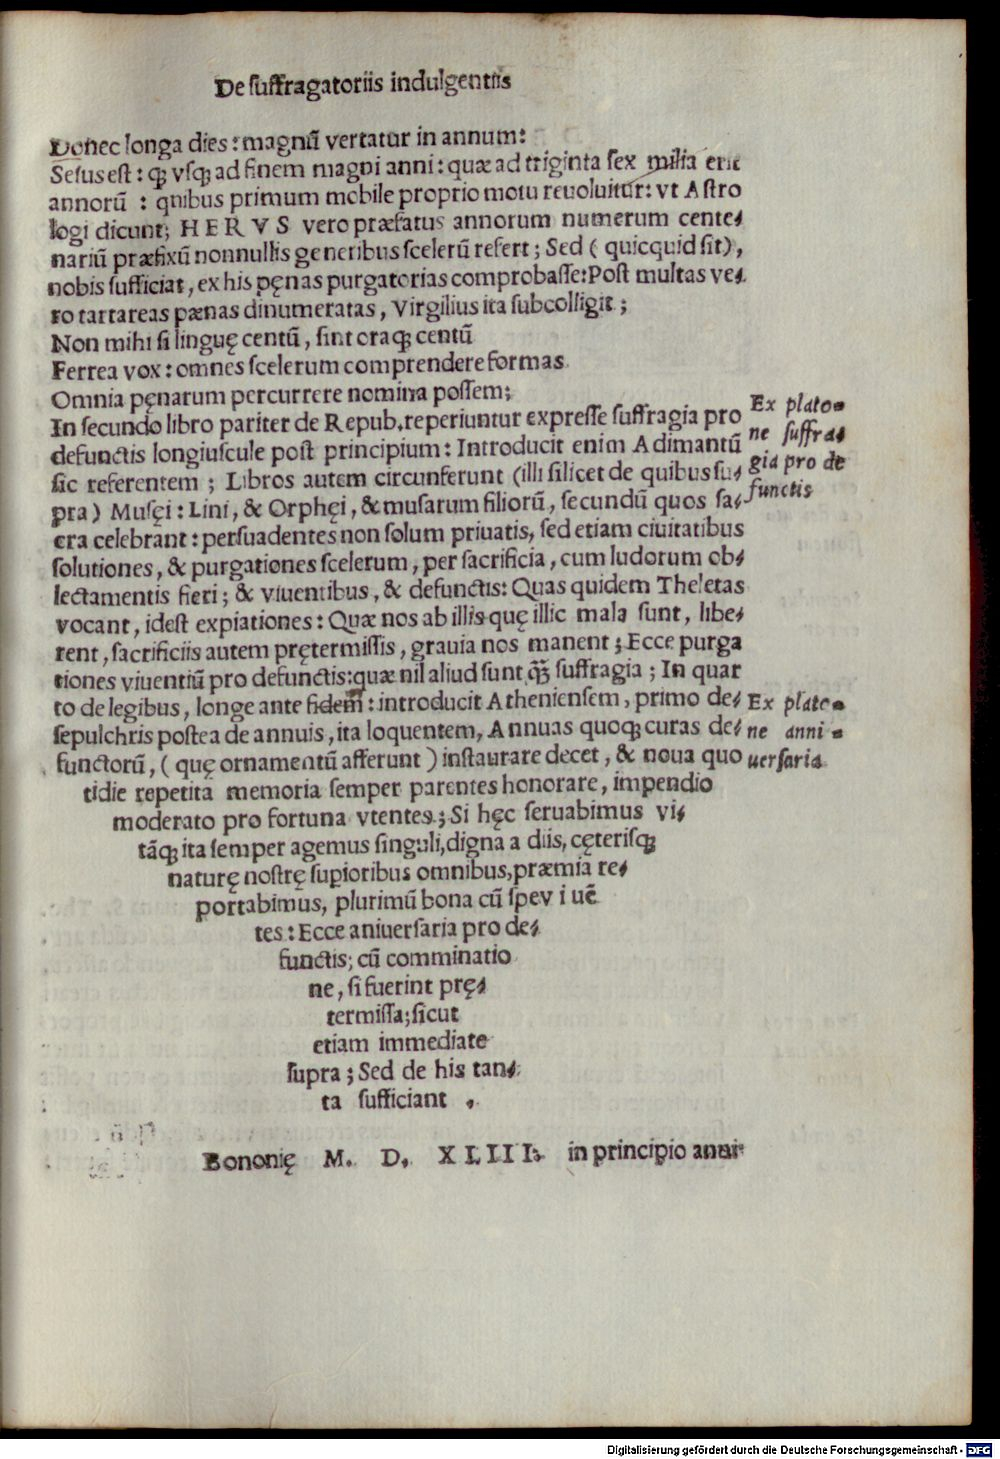 De suffragatoriis indulgentiis
Donec longa dies: magnũ vertatur in annum:
Sesus est: ꝙ vsqꝫ ad finem magni anni: quæ ad triginta sex milia erit
annorũ : quibus primum mobile proprio motu reuoluitur: vt Astro
logi dicunt; HERVS vero præfatus annorum numerum cente-
nariũ præfixũ nonnullis generibus scelerũ refert; Sed ( quicquid sit),
nobis sufficiat, ex his pęnas purgatorias comprobasse: Post multas ve-
ro tartareas pænas dinumeratas, Virgilius ita subcolligit;
Non mihi si linguę centũ, sint oraqꝫ centũ
Ferrea vox: omnes scelerum comprendere formas
Omnia pęnarum percurrere nomina possem;
In secundo libro pariter de Repub. reperiuntur expresse suffragia pro
defunctis longiuscule post principium: Introducit enim Adimantũ
sic referentem ; Libros autem circunferunt (illi silicet de quibus su-
pra) Musęi: Lini, & Orphęi, & musarum filiorũ, secundũ quos sa-
cra celebrant: persuadentes non solum priuatis, sed etiam ciuitatibus
solutiones, & purgationes scelerum, per sacrificia, cum ludorum ob-
lectamentis fieri; & viuentibus, & defunctis: Quas quidem Theletas
vocant, idest expiationes: Quæ nos ab illis quę illic mala sunt, libe-
rent, sacrificiis autem prętermissis, grauia nos manent; Ecce purga
tiones viuentiũ pro defunctis: quæ nil aliud sunt ꝙ̃ suffragia; In quar
to de legibus, longe ante fidem: introducit Atheniensem, primo de-
sepulchris postea de annuis, ita loquentem, Annuas quoqꝫ curas de-
functorũ, ( quę ornamentũ afferunt ) instaurare decet, & noua quo
tidie repetita memoria semper parentes honorare, impendio
moderato pro fortuna vtentes.; Si hęc seruabimus vi-
tãqꝫ ita semper agemus singuli, digna a diis, cęterisqꝫ
naturę nostrę supioribus omnibus, præmia re-
portabimus, plurimũ bona cũ spe v i uẽ
tes: Ecce aniuersaria pro de-
functis; cũ comminatio
ne, si fuerint prę-
termissa; sicut
etiam immediate
supra; Sed de his tan-
ta sufficiant .
Bononię M. D. XLIII. in principio anni
Ex plato-
ne suffra-
gia pro de
functis
Ex plato-
ne anni-
uersaria
Digitalisierung gefördert durch die Deutsche Forschungsgemeinschaft - DFG